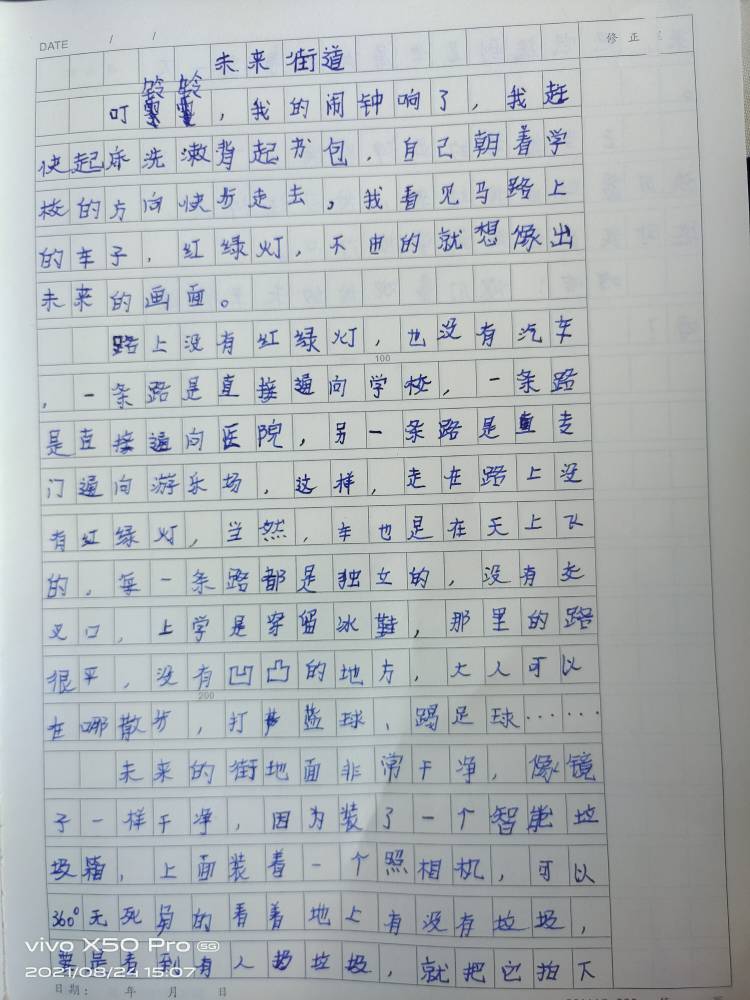 DATE / /
修正
未来街道
铃铃
叮，我的闹钟响了，我赶
快起床洗漱背起书包，自己朝着学
校的方向快步走去，我看见马路上
的车子，红绿灯，不由的就想像出
未来的画面。
路上没有红绿灯，也没有汽车
100
，一条路是直接通向学校，一条路
是直接通向医院，另一条路是直专
门通向游乐场，这样，走在路上没
有红绿灯，当然，车也是在天上飞
的，每一条路都是独立的，没有交
叉口，上学是穿留冰鞋，那里的路
很平，没有凹凸的地方，大人可以
200
在哪散步，打蓝球、踢足球……
未来的街地面非常干净，像镜
子一样干净，因为装了一个智能垃
圾箱，上面装着一个照相机，可以
360°无死角的看着地上有没有垃圾，
要是看到有人扔垃圾，就把它拍下
vivo X50 Pro 5G
2021/08/24 15:07
日期： 年 月 日